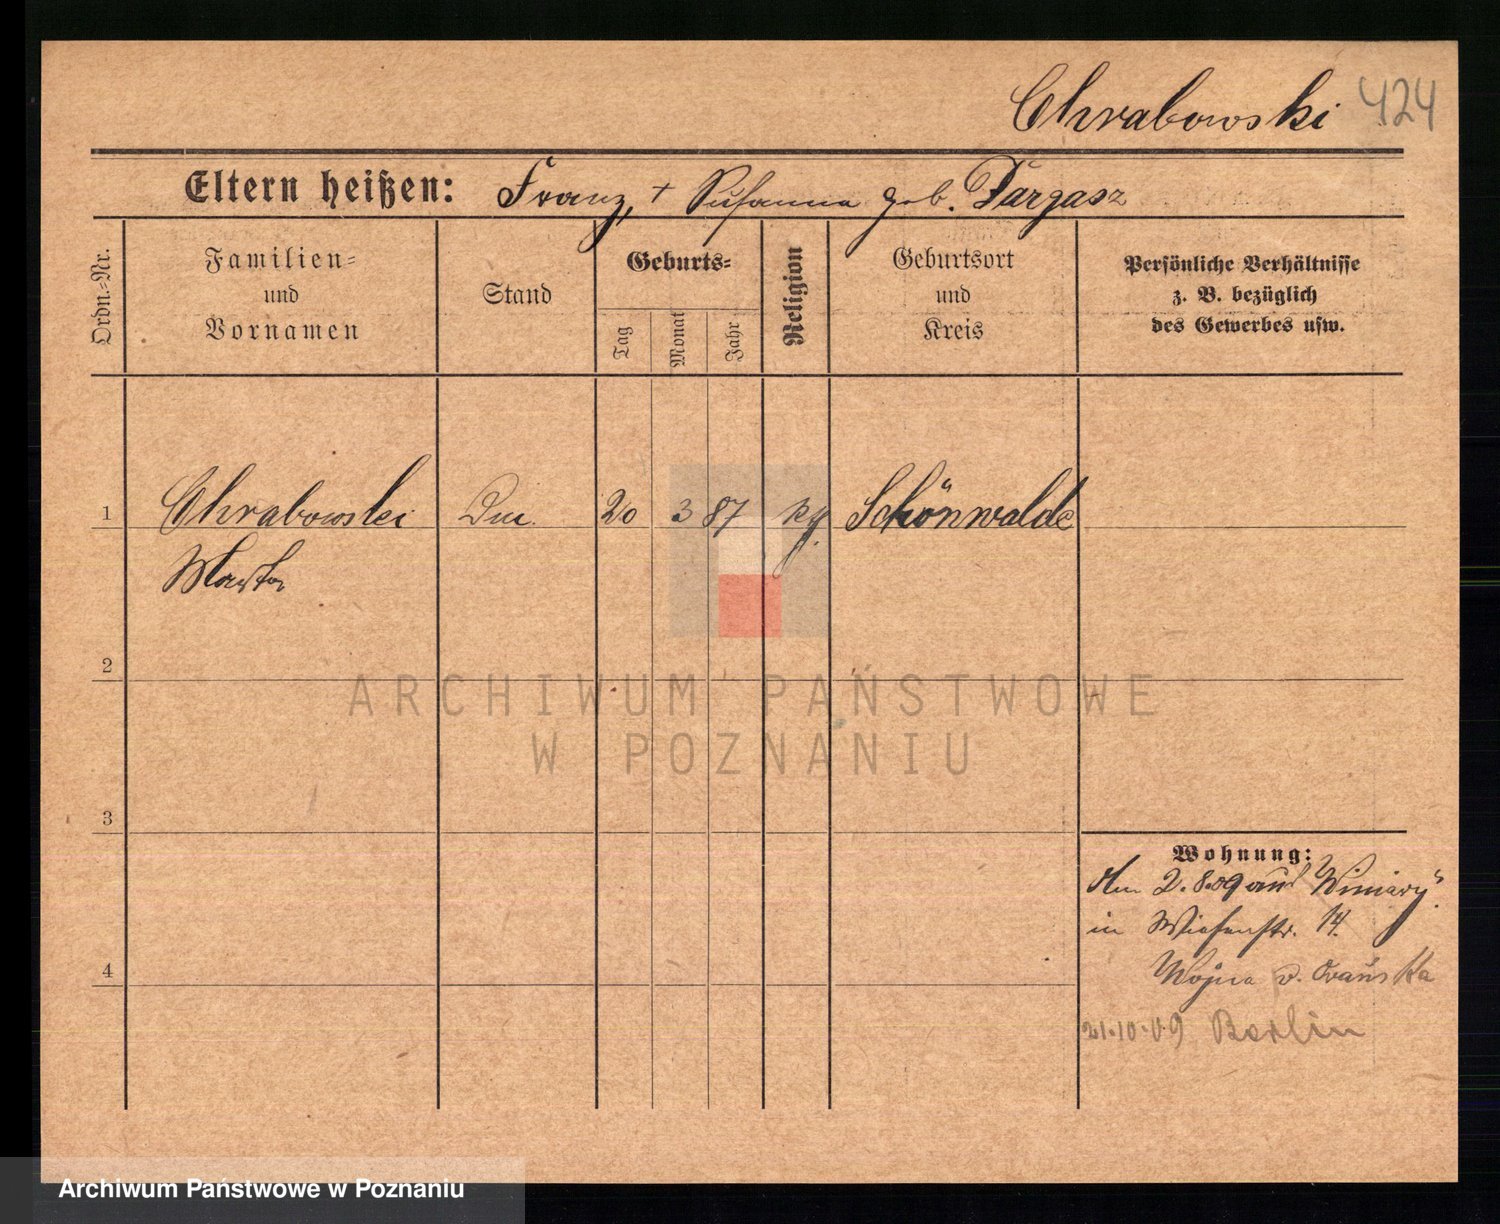 Chrabowski 424
Eltern heißen: Franz, + Susanna geb. Targasz
Ordn.-Nr.
Familien=
und
Vornamen
Stand
Geburts=
Tag
Monat
Jahr
Religion
Geburtsort
und
Kreis
Persönliche Verhältnisse
z. B. bezüglich
des Gewerbes usw.
1 Chrabowski 20 3 87 Schönwalde
Martha
2
3
4
Wohnung:
Am 2.8.09 aus Winiary
in Wiesenstr. 14.
Wojna
21.10.09 Berlin
ARCHIWUM PAŃSTWOWE
W POZNANIU
Archiwum Państwowe w Poznaniu